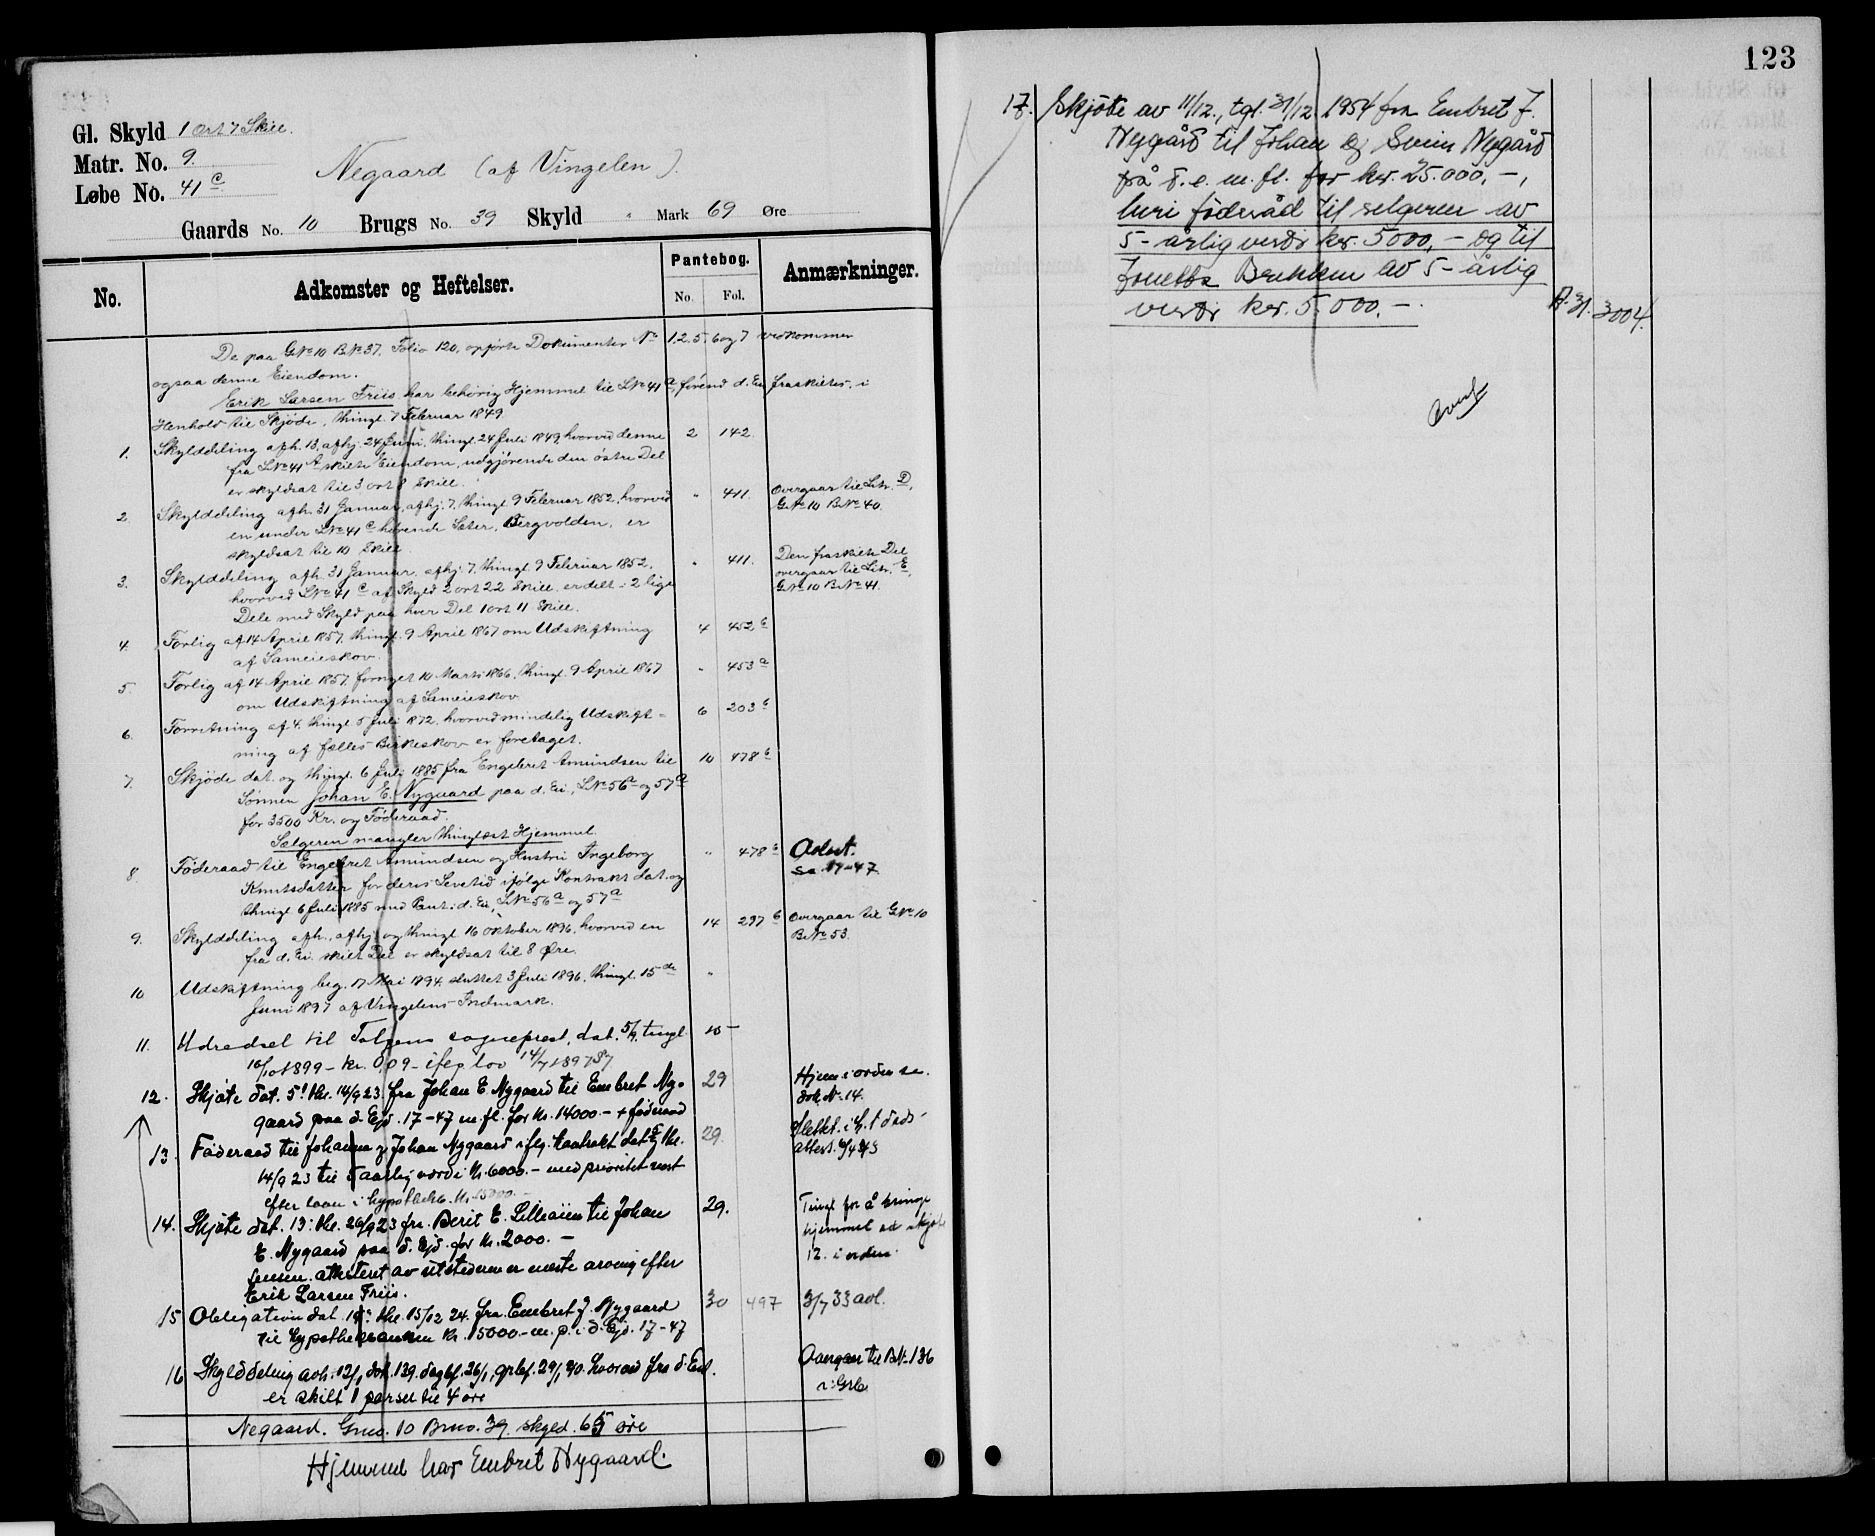 Gl. Skyld 1 Ort 7 Skill.
Matr. No. 9.
Løbe No. 41 c
Negaard (af Vingelen).
Gaards No. 10 Brugs No. 39 Skyld " Mark 69 Øre
No. Adkomster og Heftelser. Pantebog. No. Fol. Anmærkninger.
De paa GNo 10 BNo 37, Folio 120, opførte Dokumenter No 1, 2, 5, 6 og 7 vedkommer
ogsaa denne Eiendom.
Erik Larsen Friis har behørig Hjemmel til LNo 41 a, førend d. Ei. fraskiltes, i
Henhold til Skjøde, thingl. 7 Februar 1849.
1. Skylddeling afh. 13, afhj. 24 Juni, thingl. 24 Juli 1849, hvorved denne 2 142.
fra LNo 41 a skilte Eiendom, udgjørende den østre Del
er skyldsat til 3 ort 8 Skill.
2. Skylddeling afh. 31 Januar, afhj. 7, thingl. 9 Februar 1852, hvorved " 411. Overgaar til Litr. D,
en under LNo 41 c hørende Sæter, Bergvolden, er GNo 10 BNo 40.
skyldsat til 10 Skill.
3. Skylddeling afh. 31 Januar, afhj. 7, thingl. 9 Februar 1852, " 411. Den fraskilte Del
hvorved LNo 41 c af Skyld 2 ort 22 Skill. er delt i 2 lige overgaar til Litr. E,
Dele med Skyld paa hver Del 1 ort 11 Skill. GNo 10 BNo 41.
4. Forlig af 14 April 1857, thingl. 9 April 1867 om Udskiftning 4 452 b
af Sameieskov.
5. Forlig af 14 April 1857, fornyet 10 Marts 1866, thingl. 9 April 1867 " 453 a
om Udskiftning af Sameieskov.
6. Forretning af 4, thingl. 5 Juli 1872, hvorved mindelig Udskift- 6 203 b
ning af fælles Birkeskov er foretaget.
7. Skjøde dat. og thingl. 6 Juli 1885 fra Engebret Amundsen til 10 478 b
Sønnen Johan E. Nygaard paa d. Ei., LNo 56 a og 57 a
for 3500 Kr. og Føderaad.
Sælgeren mangler thinglæst Hjemmel.
8. Føderaad til Engebret Amundsen og Hustru Ingeborg " 478 b Avlest.
Knutsdatter for deres Levetid ifølge Kontrakt dat. og se 17-47
thingl. 6 Juli 1885 med Pant i d. Ei., LNo 56 a og 57 a
9. Skylddeling afh., afhj. og thingl. 16 Oktober 1896, hvorved en 14 297 b Overgaar til GNo 10
fra d. Ei. skilt Del er skyldsat til 8 Øre. BNo 53.
10 Udskiftning beg. 17 Mai 1894, sluttet 3 Juli 1896, thingl. 15 de "
Juni 1897 af Vingelens Indmark.
11. Udredsel til Tolgens sogneprest, dat. 5/9, tingl. 15 -
10/10 1899 - kr. 0,09 - ifølg lov 14/7 1897 §7
12. Skjøte dat. 5. thl. 14/9 23 fra Johan E. Nygaard til Embret Ny- 29 Hjem. i orden se.
gaard paa d. Ejd. 17-47 m. fl. for kr. 14000.- + føderaad dok. No 14.
13. Føderaad til Johanna og Johan Nygaard iflg. kontrakt dat. 5/9 thl. 29. Slettet. i h. t. døds-
14/9 23 til 5 aarlig værdi kr. 6000.- med prioritet næst attest.
efter laan i hypothekb. kr. 15000.-
14. Skjøte dat. 13. thl. 20/9 23 fra Berit E. Lilleøien til Johan 29. Tingl for å bringe
E. Nygaard paa d. Ejd. for kr. 2000.- hjemmel ved skjøte
attesteret av utstederen er næste arving efter 12. i orden.
Erik Larsen Friis.
15 Obligation dat. 19. thl. 15/12 24. fra Embret J. Nygaard 30 497 3/7 33 avl.
til hypothekbanken kr. 15000.- m. p. i d. Ejd. 17-47
16 Skylddeling avh. 12/1, dok. 139, dagbf. 26/1, grbf. 29/1 40. hvorved fra d. Eid. Overgaar til BNo 136
er skilt 1 parsel til 4 øre i Grb
Negaard. Gno. 10 Bno. 39 skyld. 65 øre
Hjemmel har Embret Nygaard.
123
17. Skjøte av 11/12., tgl. 31/12. 1954 fra Embret J.
Nygård til Johan og Svein Nygård
på d. e. m. fl. for kr. 25.000,-,
huri föderåd til selgeren av
5-årlig verdi kr. 5000,- og til
av 5-årlig
verdi kr. 5.000.-. B. 31. 3004.
Overf